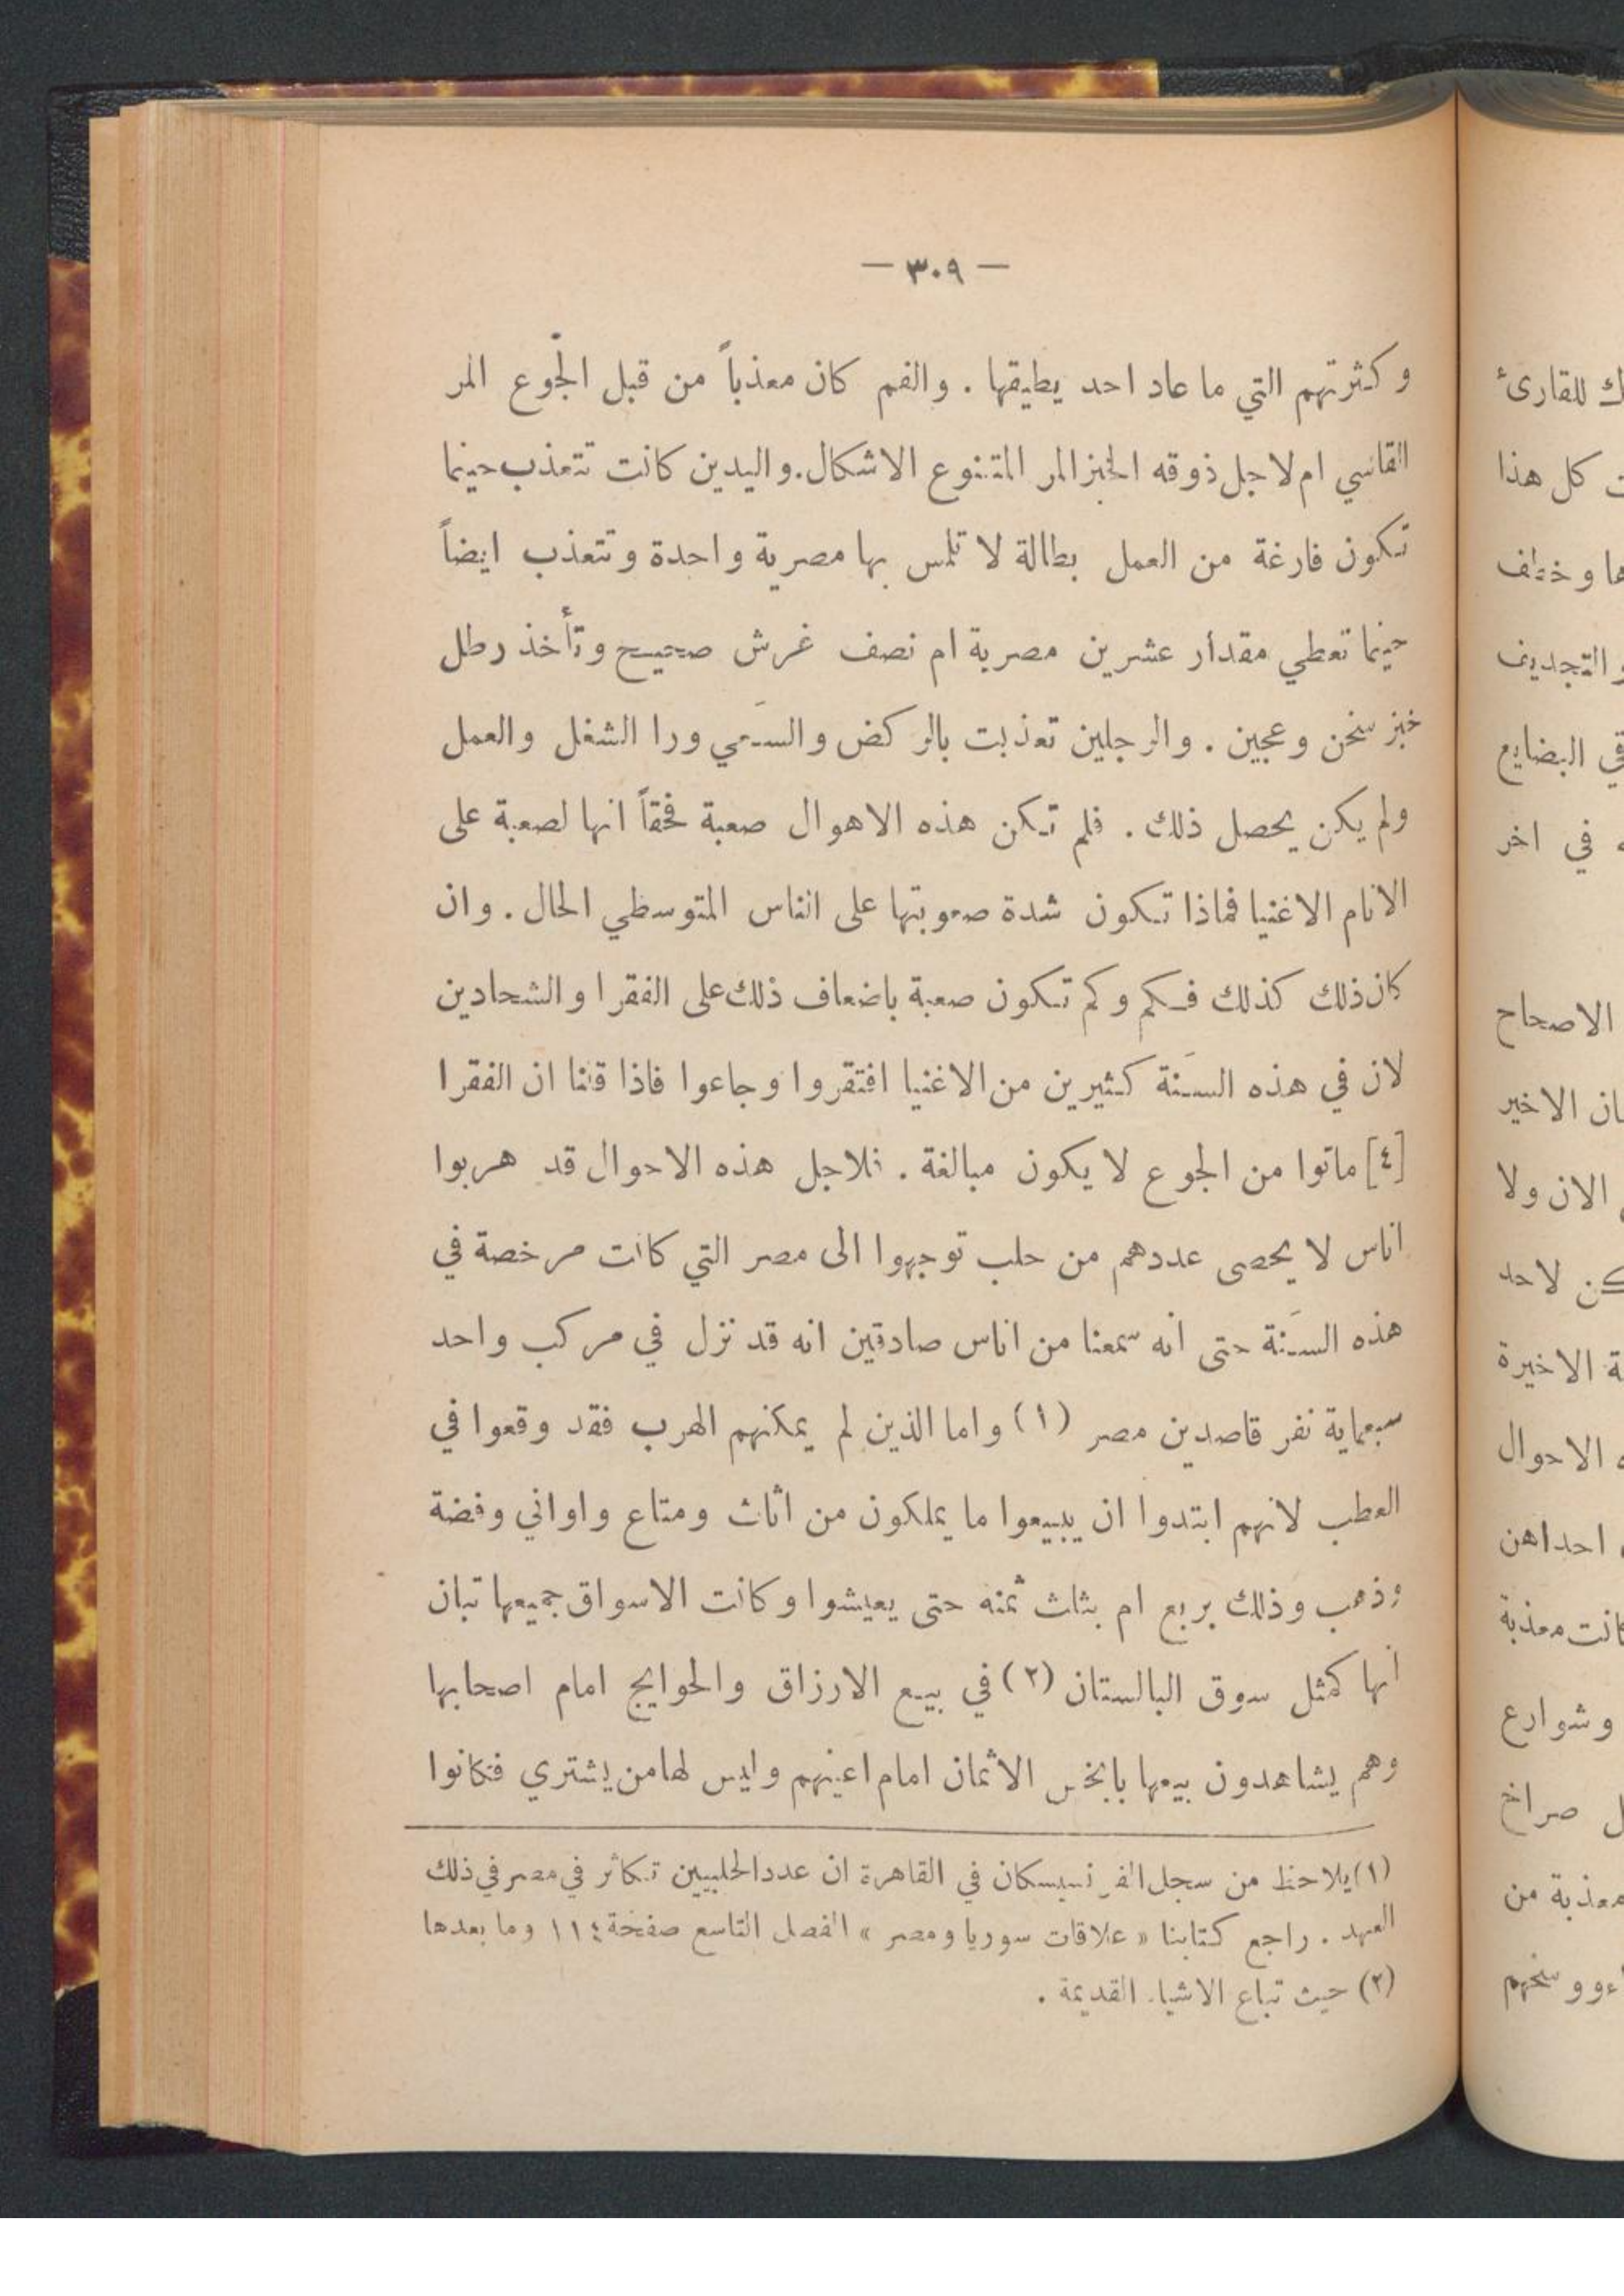 — ٣٠٩ —
وكثرتهم التي ما عاد احد يطيقها . والفم كان معذباً من قبل الجوع المر
القاسي ام لاجل ذوقه الخبز المر المتنوع الاشكال. واليدين كانت تتعذب حينما
تكون فارغة من العمل بطالة لا تلمس بها مصرية واحدة وتتعذب ايضاً
حينما تعطي مقدار عشرين مصرية ام نصف غرش صحيح وتأخذ رطل
خبز سخن وعجين . والرجلين تعذبت بالركض والسعي ورا الشغل والعمل
ولم يكن يحصل ذلك . فلم تكن هذه الاهوال صعبة فحقاً انها لصعبة على
الانام الاغنيا فماذا تكون شدة صعوبتها على الناس المتوسطي الحال . وان
كان ذلك كذلك فكم وكم تكون صعبة باضعاف ذلك على الفقرا والشحادين
لان في هذه السنة كثيرين من الاغنيا افتقروا وجاعوا فاذا قلنا ان الفقرا
[٤] ماتوا من الجوع لا يكون مبالغة . فلاجل هذه الاحوال قد هربوا
اناس لا يحصى عددهم من حلب توجهوا الى مصر التي كانت مرخصة في
هذه السنة حتى انه سمعنا من اناس صادقين انه قد نزل في مركب واحد
سبعماية نفر قاصدين مصر (١) واما الذين لم يمكنهم الهرب فقد وقعوا في
العطب لانهم ابتدوا ان يبيعوا ما يملكون من اثاث ومتاع واواني وفضة
وذهب وذلك بربع ام بثلث ثمنه حتى يعيشوا وكانت الاسواق جميعها تبان
انها كمثل سوق البالستان (٢) في بيع الارزاق والحوايج امام اصحابها
وهم يشاهدون بيعها بابخس الاثمان امام اعينهم وليس لها من يشتري فكانوا
(١) يلاحظ من سجل الفرنسيسكان في القاهرة ان عدد الحلبيين تكاثر في مصر في ذلك
العهد . راجع كتابنا « علاقات سوريا ومصر » الفصل التاسع صفحة ١١٤ وما بعدها
(٢) حيث تباع الاشياء القديمة .
للقارئ
كل هذا
وخطف
والتجديف
البضايع
في اخر
الاصحاح
الاخير
الان ولا
لاحد
الاخيرة
الاحوال
احداهن
معذبة
وشوارع
صراخ
معذبة من